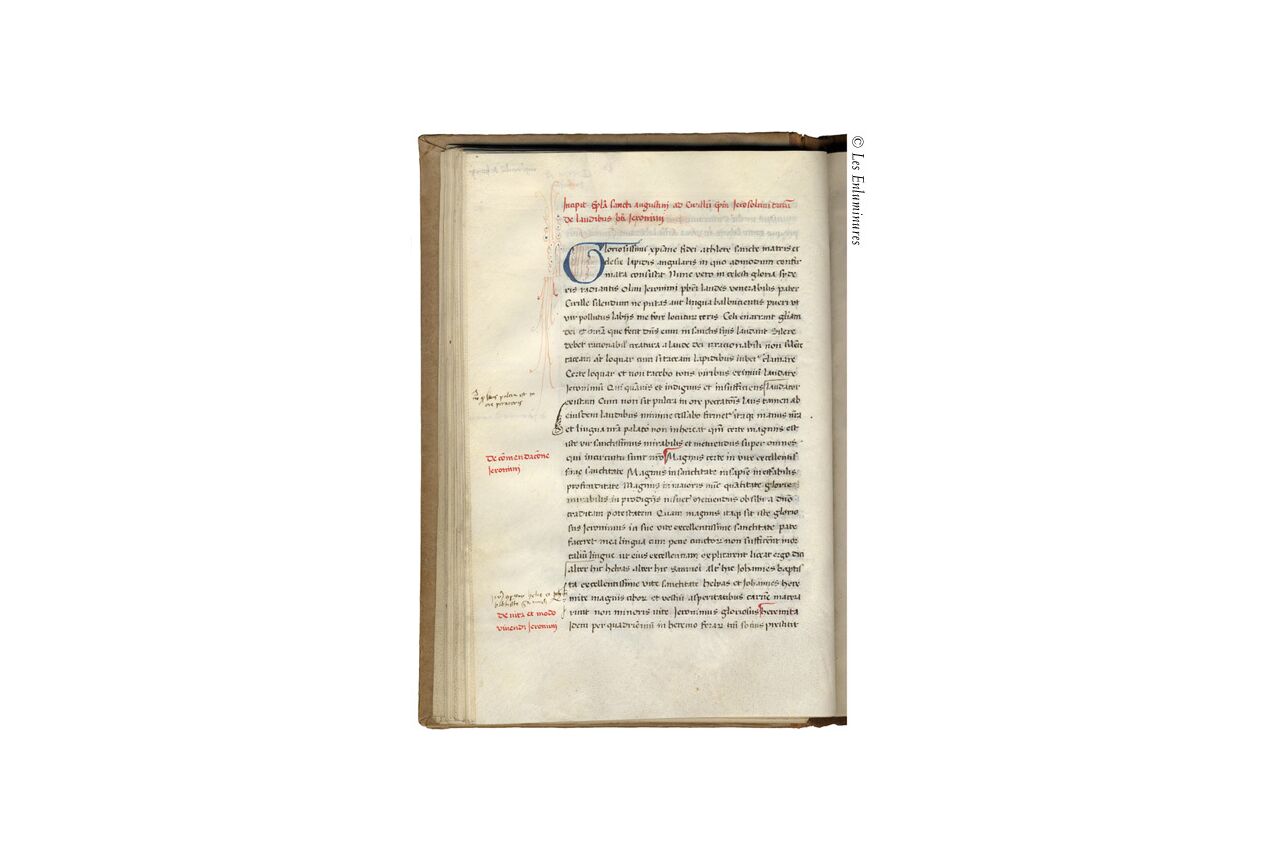 Incipit epl̃a sancti augustinj ad Cirillũ ep̃m Jerosolimitanũ
de laudibus bti Jeronimj
Gloriosissimi xpiane fidei athlete sancte matris ec
clesie lapidis angularis in quo admodum confir
mata consistit Nunc vero in celesti gloria syde
ris radiantis olim Jeronimi pbr̃i laudes venerabilis pater
Cirille silendum ne putas aut lingua balbucientis pueri vt
vir pollutus labijs me fore locutur Celi enarrant gl̃iam
dei et que fecit dñs eum in sanctis suis laudant Silere
debet racionabil' creatura a laude dei irracionabili non silent
taceam aut loquar cum si taceam lapidibus iubet' clamare
Certe loquar et non tacebo totis viribus eximiũ laudare
Jeronimũ Qui quãuis et indignus et insufficiens laudator
existam Cum non sit pulcra in ore peccatoris laus tamen ab
eiusdem laudibus minime cessabo firmet' itaq manus nr̃a
et lingua nr̃a palato non inhereat qm̃ certe magnus est
iste vir sanctissimus mirabilis et metuendus super omnes
qui in circuitu sunt nr̃o Magnus certe in vite excellentis
sime sanctitate Magnus in sanctitate in sapie ineffabilis
profunditate Magnus in maioris nũc quantitate glorie
mirabilis in prodigijs insuet' metuendus ob sibi a dño
traditam potestatem Quam magnus itaq sit iste glorio
sus Jeronimus in sue vite excellentissime sanctitate pate
faceret mea lingua cum pene cunctor non sufficerent mor
taliũ lingue ut eius excellentiam explicarent liceat ergo dici
alter hic helyas alter hic samuel alt' hic Johannes baptis
ta excellentissime vite sanctitate helyas et Johannes here
mite magnis cibor et vestiũ asperitatibus carnẽ macera
runt non minoris vite Jeronimus gloriosus heremita
Idem per quadrienniũ in heremo ferar tm̃ socius prefuit
De cõmendacõne
Jeronimj
De vita et modo
vivendi Jeronimj
© Les Enluminures